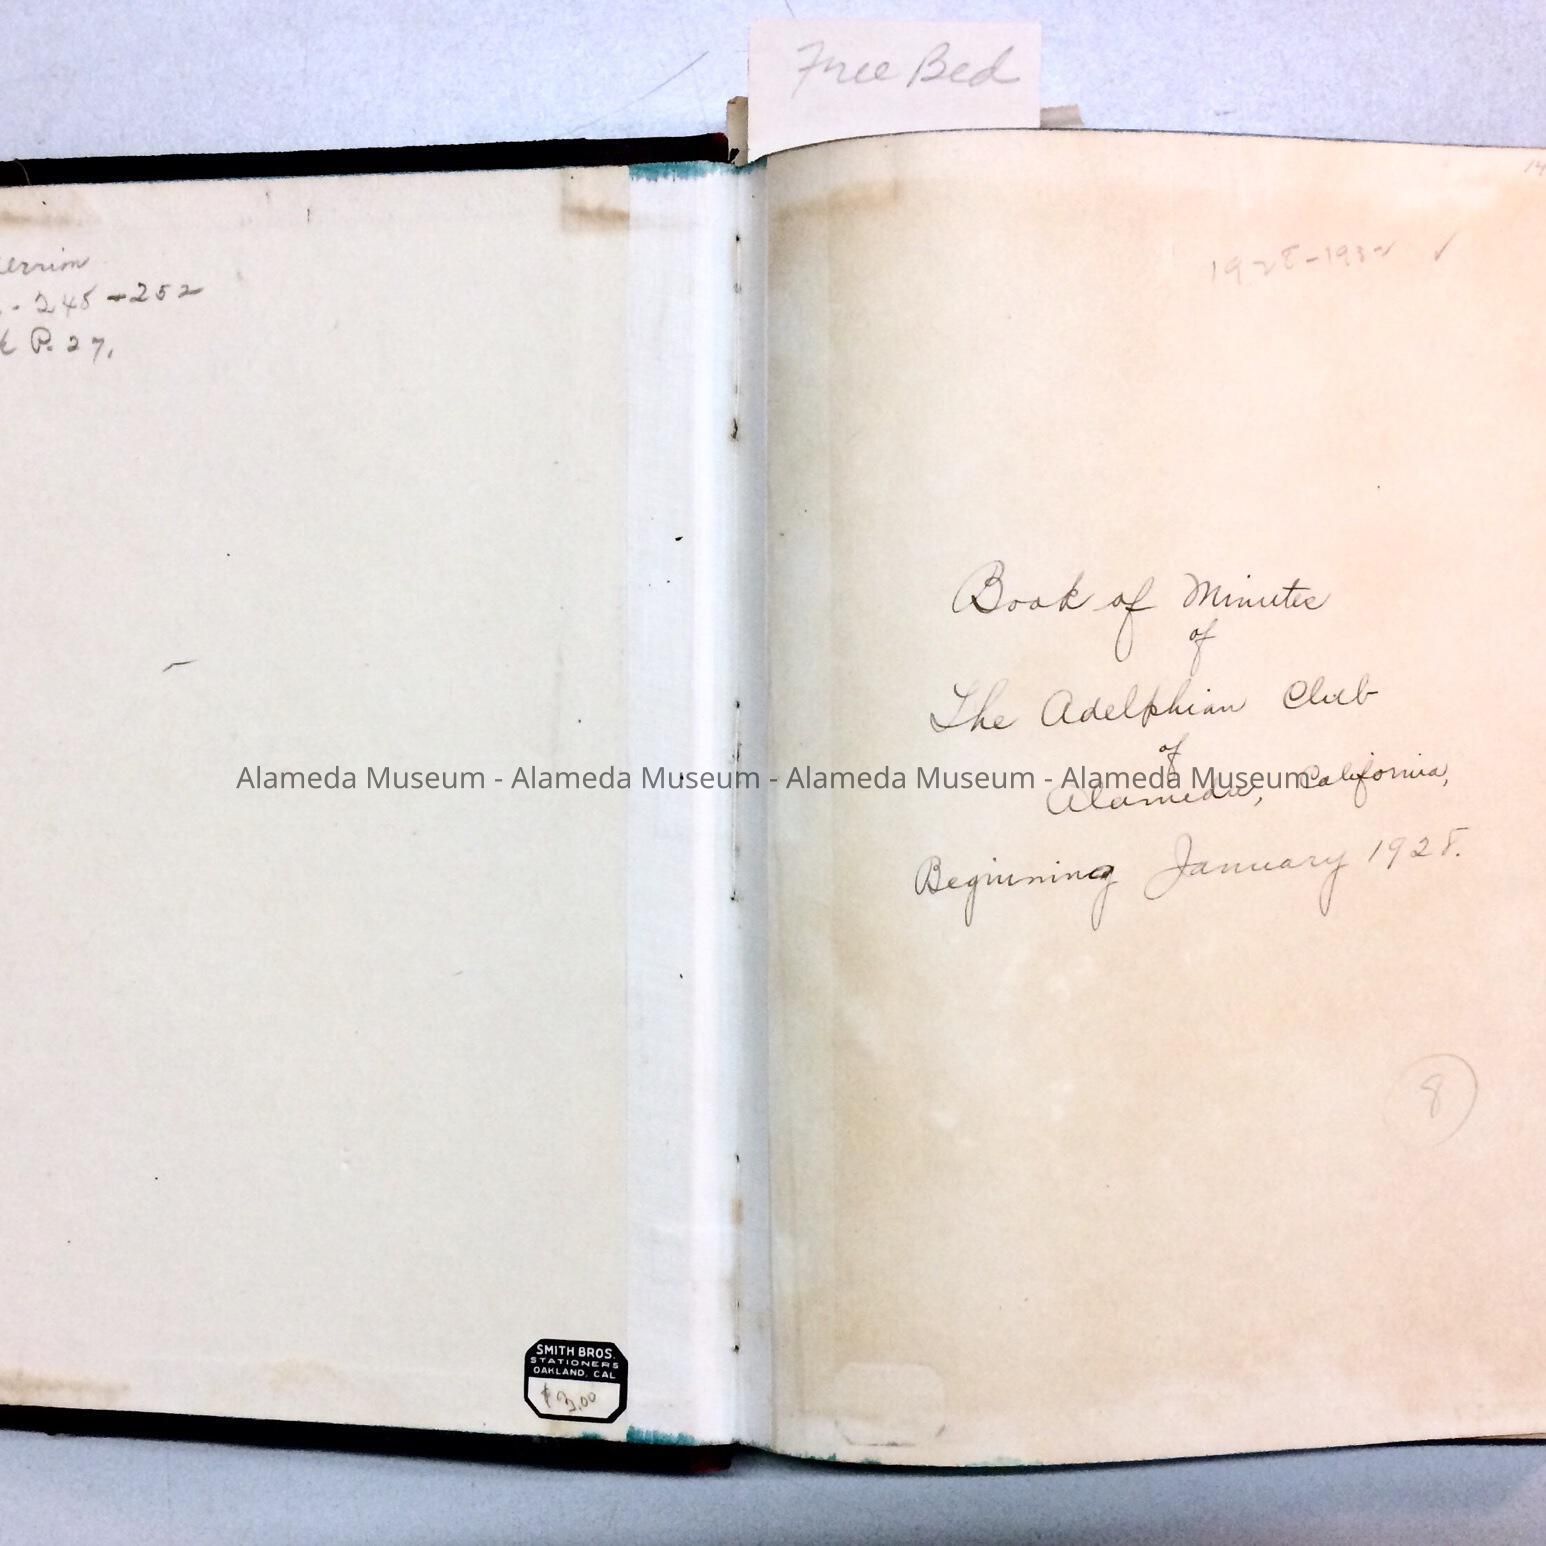 Free Bed
245-252
P. 27.
SMITH BROS.
STATIONERS
OAKLAND, CAL
$3.00
1928-1932 ✓
Book of Minutes
of
The Adelphian Club
of
Alameda, California,
Beginning January 1928.
8
Alameda Museum - Alameda Museum - Alameda Museum - Alameda Museum